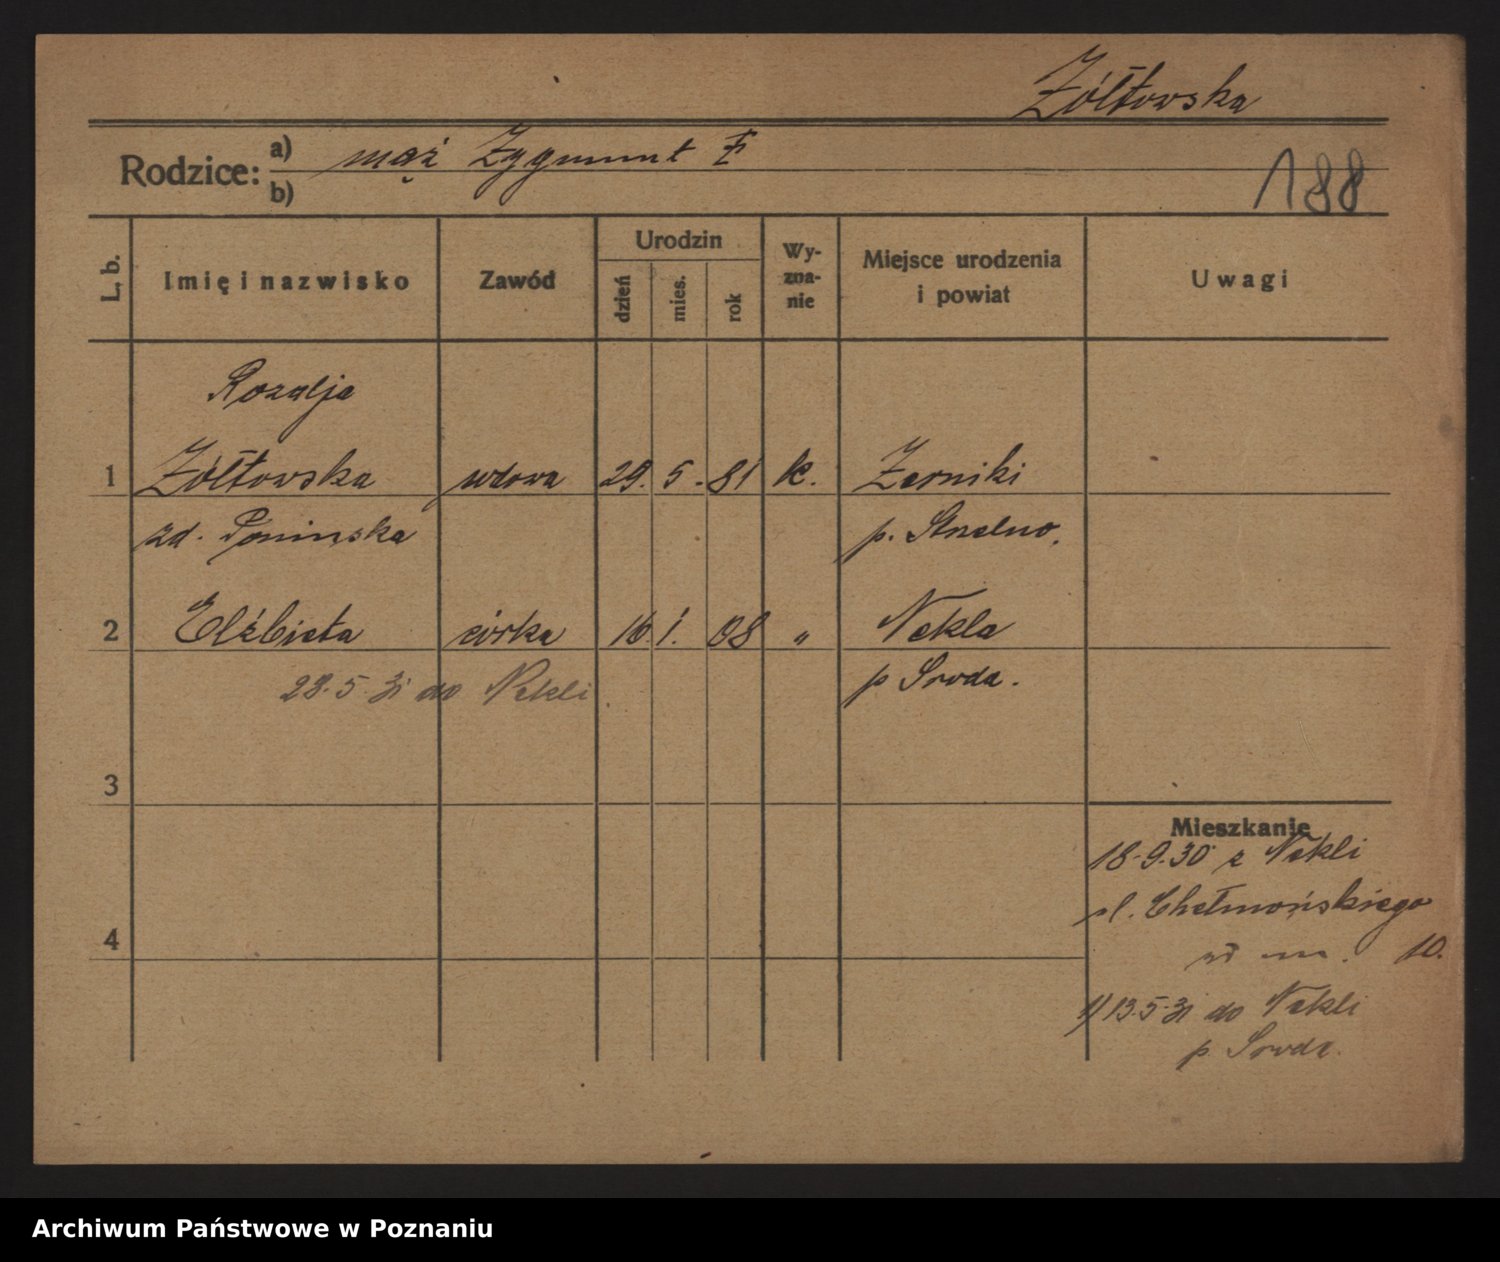 Żółtowska
Rodzice:
a) mąż Zygmunt Ż
b)
188
L. b.
Imię i nazwisko
Zawód
Urodzin
dzień
mies.
rok
Wy-
zna-
nie
Miejsce urodzenia
i powiat
Uwagi
Rozalja
1 Żółtowska wdowa 29. 5. 81 k. Żerniki
zd. Ponińska p. Strzelno.
2 Elżbieta córka 16. 1. 08 „ Nekla
28.5.31 do Nekli p Środa.
3
4
Mieszkanie
18.9.30 z Nekli
Chełmońskiego
10.
1) 13.5.31 do Nekli
p. Środa.
Archiwum Państwowe w Poznaniu